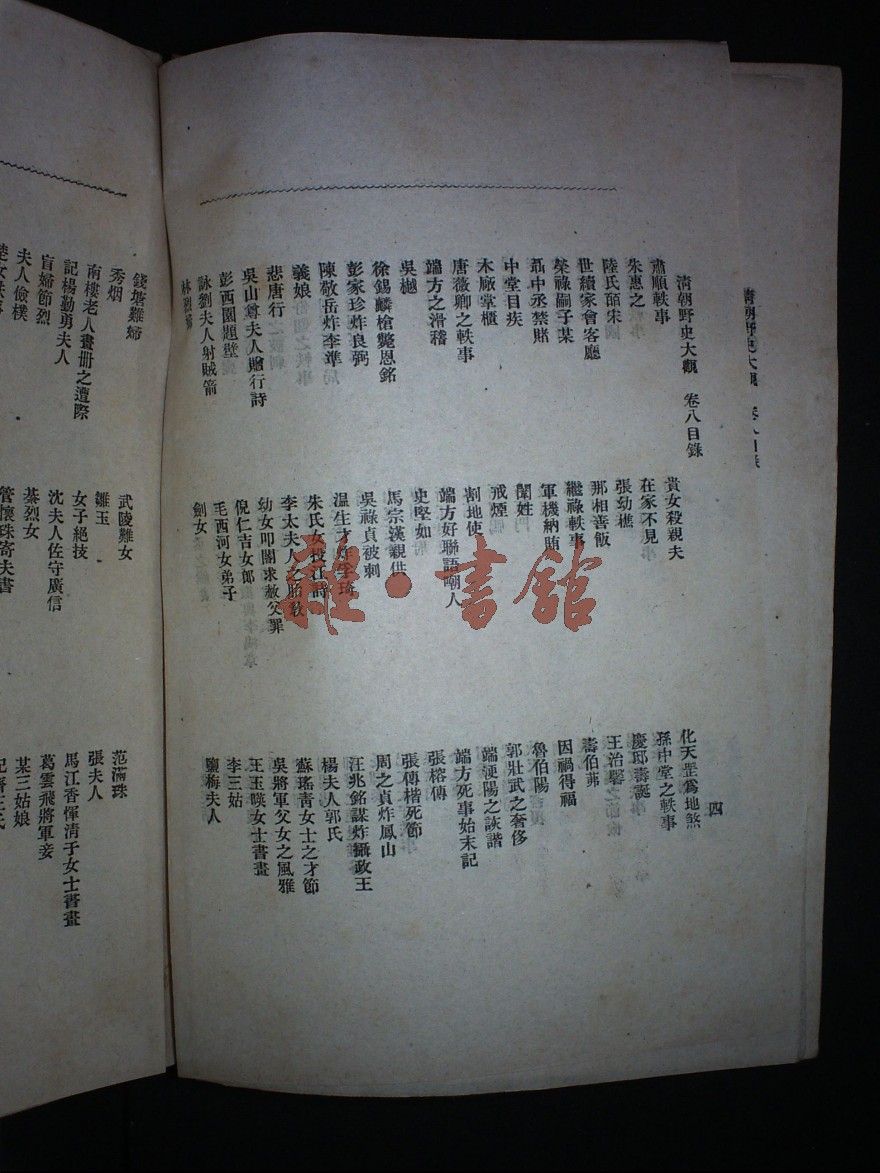 清朝野史大觀 卷八目錄
四
肅順軼事
貴女殺親夫
化天罡爲地煞
朱惠之
在家不見
孫中堂之軼事
陸氏皕宋
張幼樵
慶邸壽誕
世續家會客廳
那相善飯
王治馨
榮祿嗣子某
繼祿軼事
壽伯茀
聶中丞禁賭
軍機納賄
因禍得福
中堂目疾
闈姓
魯伯陽
木廠掌櫃
戒煙
郭壯武之奢侈
唐薇卿之軼事
割地使
端浭陽之詼諧
端方之滑稽
端方好聯語嘲人
端方死事始末記
吳樾
史堅如
張榕傳
徐錫麟槍斃恩銘
馬宗漢親供
張傳楷死節
彭家珍炸良弼
吳祿貞被刺
周之貞炸鳳山
陳敬岳炸李準
温生才炸孚琦
汪兆銘謀炸攝政王
義娘
朱氏女投江詩
楊夫人郭氏
悲唐行
李太夫人之胎敎
蘇瑤靑女士之才節
吳山尊夫人贈行詩
幼女叩閽求赦父罪
吳將軍父女之風雅
彭西園題壁
倪仁吉女郎
王玉暎女士書畫
詠劉夫人射賊箭
毛西河女弟子
李三姑
劍女
鹽梅夫人
錢塔難婦
武陵難女
范滿珠
秀烟
雛玉
張夫人
南樓老人畫册之遭際
女子絕技
馬江香惲淸于女士書畫
記楊勤勇夫人
沈夫人佐守廣信
葛雲飛將軍妾
盲婦節烈
綦烈女
某三姑娘
夫人儉樸
管懷珠寄夫書
清朝野史大觀 卷八目錄
雜·書館